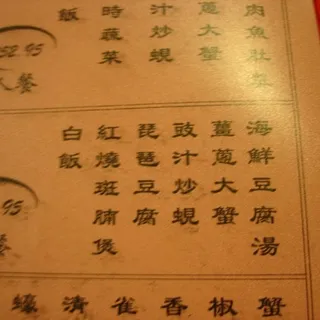 肉魚肚羹
蔥大蟹
汁炒蜆
時蔬菜
飯
2.95
人餐
海鮮豆腐湯
薑蔥大蟹
豉汁炒蜆
琵琶豆腐
紅燒斑腩煲
白飯
.95
餐
蟹
椒
香
雀
清
蠔